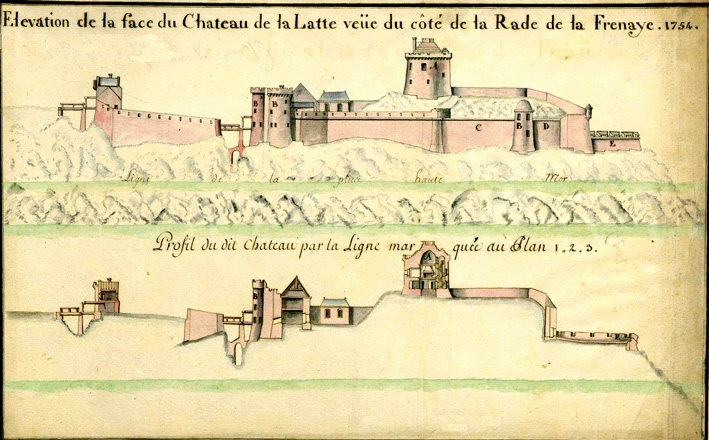 Elevation de la face du Chateau de la Latte veüe du côté de la Rade de la Frenaye. 1754.
A
B B
C B D
E
Ligne de la plus haute Mer
Profil du dit Chateau par la Ligne marquée au Plan 1.2.3.